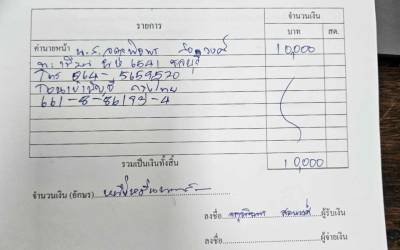 รายการ จำนวนเงิน
บาท สต.
ค่านายหน้า น.ส. 10,000
6541 ชลบุรี
โทร 064-5659520
กรุงไทย
661-8-86193-4
รวมเป็นเงินทั้งสิ้น 10,000
จำนวนเงิน (อักษร) หนึ่งหมื่นบาท
ลงชื่อ ผู้รับเงิน
ลงชื่อ ผู้จ่ายเงิน